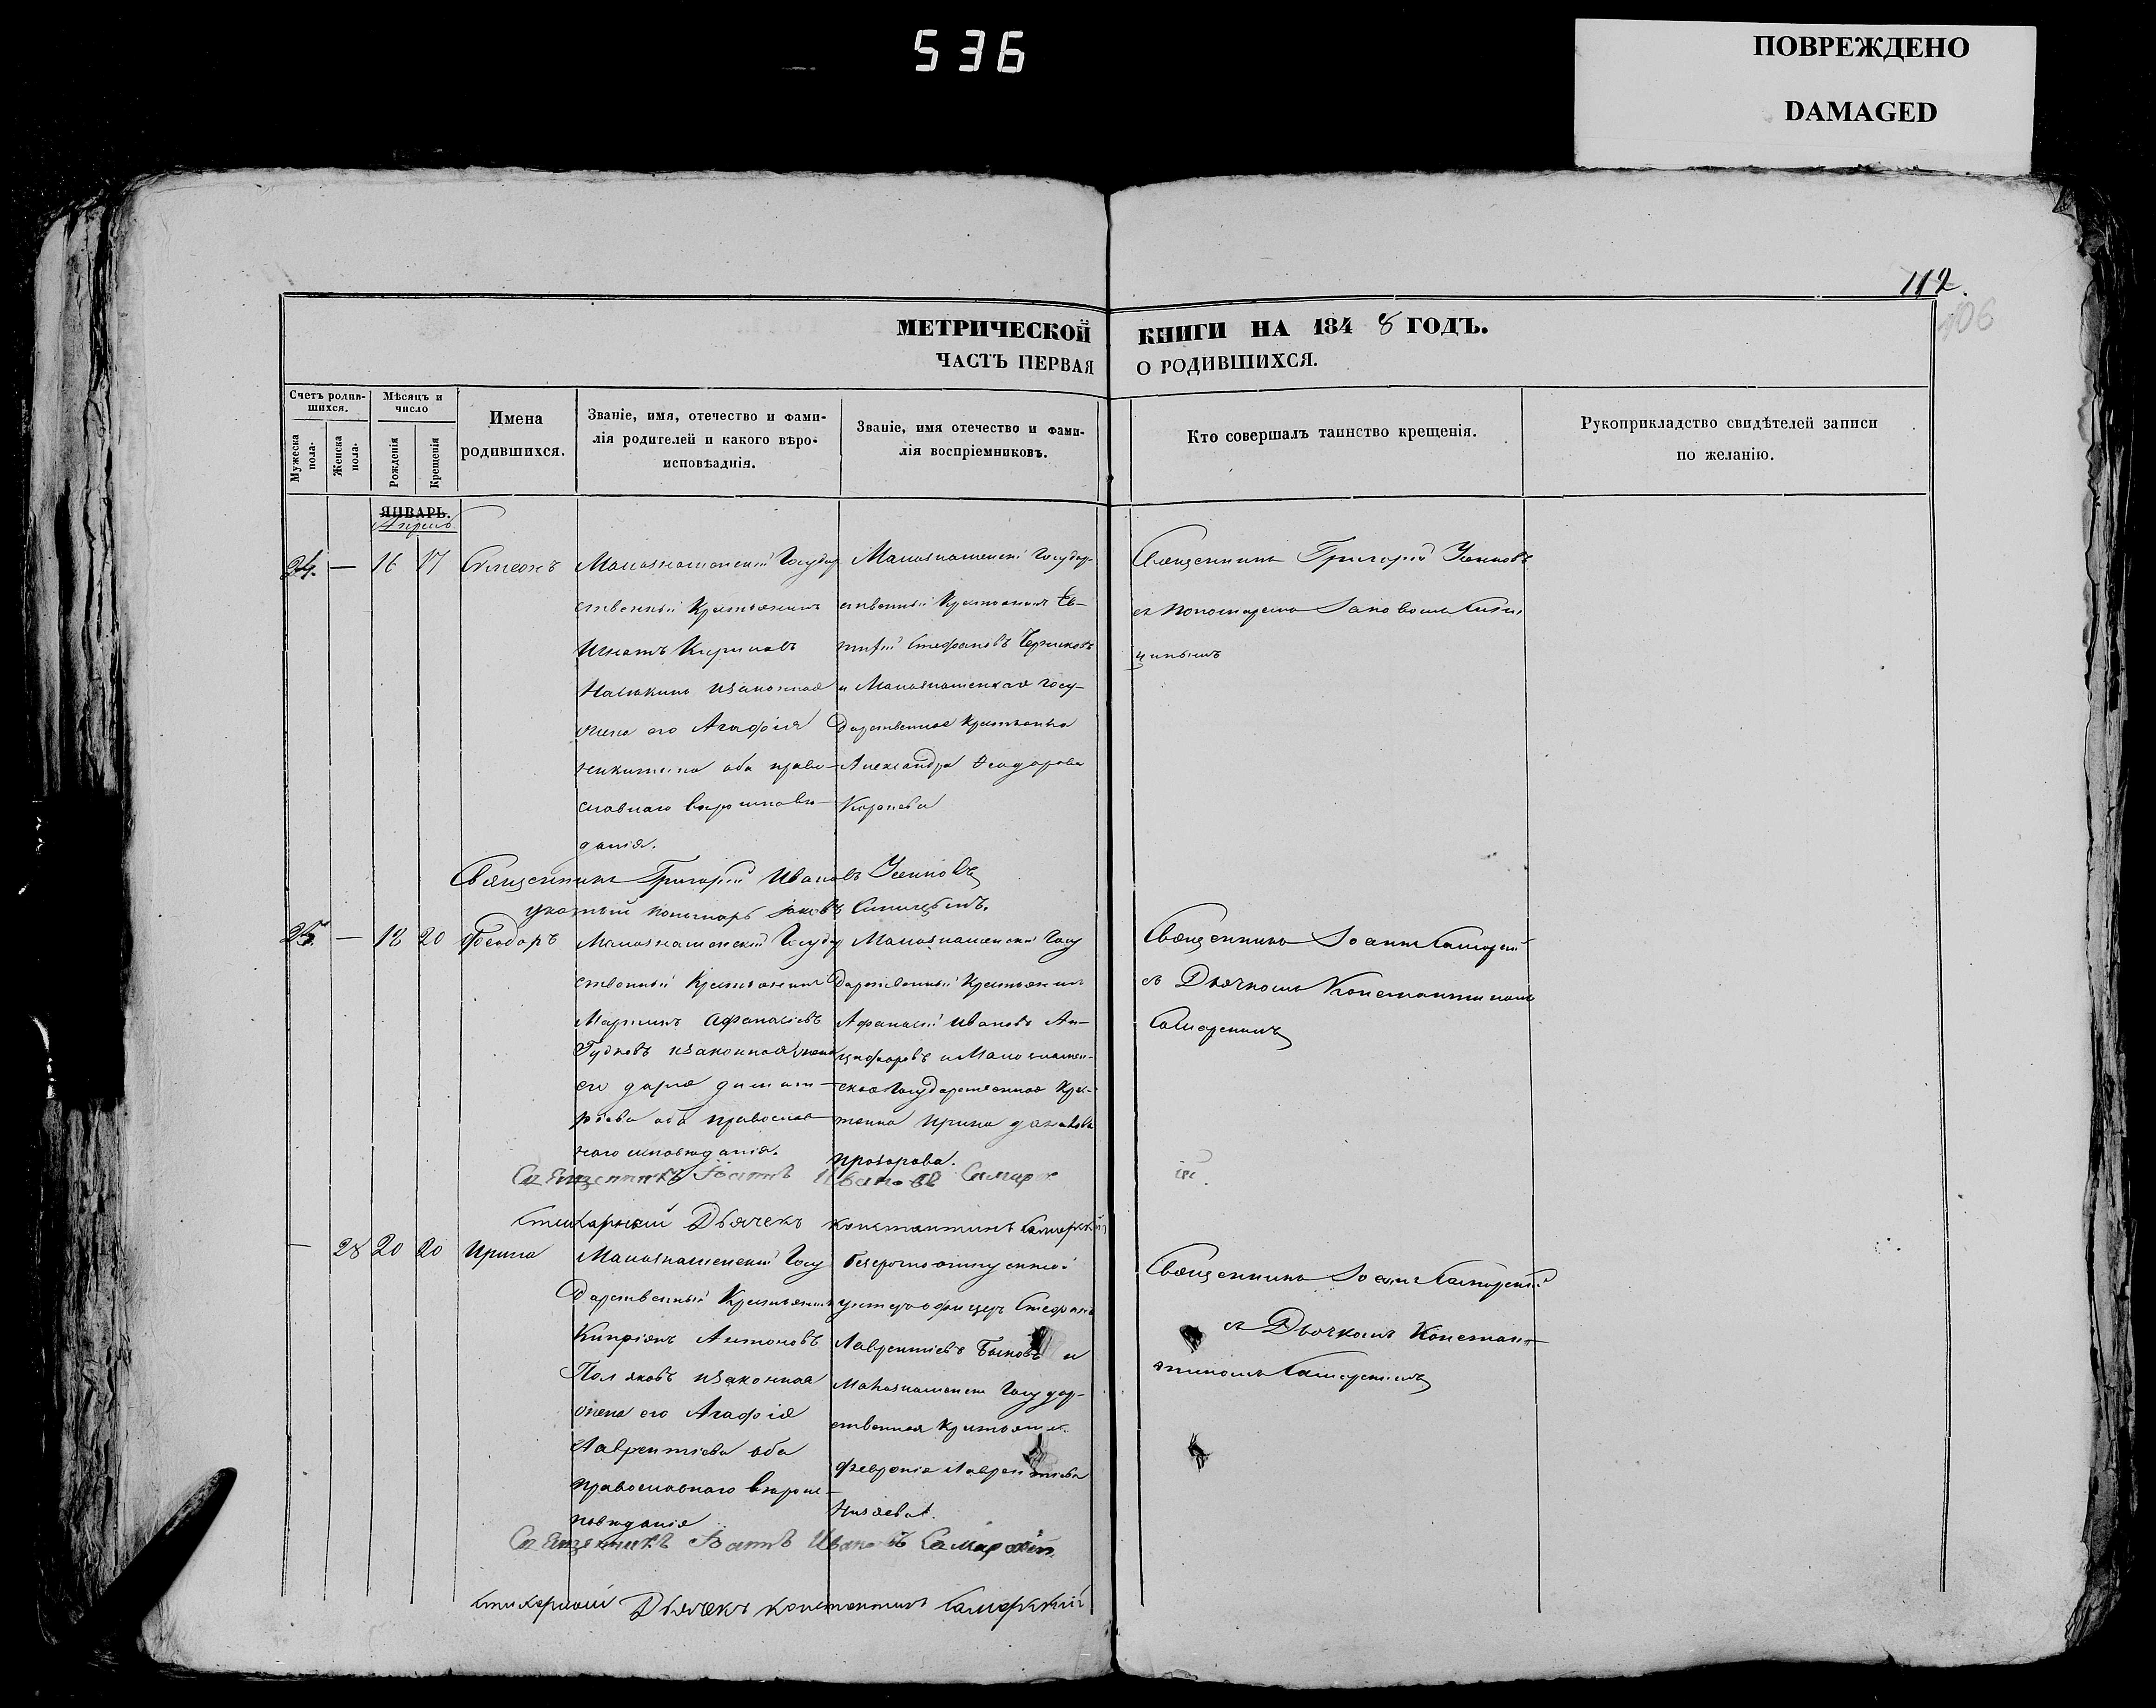 536
ПОВРЕЖДЕНО
DAMAGED
112.
106
МЕТРИЧЕСКОЙ КНИГИ НА 1848 ГОДЪ.
ЧАСТЬ ПЕРВАЯ О РОДИВШИХСЯ.
Счетъ родив-
шихся.
Мужеска
пола.
Женска
пола.
Мѣсяцъ и
число
Рожденія
Крещенія
Имена
родившихся.
Званіе, имя, отечество и фами-
лія родителей и какого вѣро-
исповѣаднія.
Званіе, имя отечество и фами-
лія воспріемниковъ.
Кто совершалъ таинство крещенія.
Рукоприкладство свидѣтелей записи
по желанію.
ЯНВАРЬ.
Апрель
24. — 16 17 Симеонъ
Малознаменскій Государ
ственный Крестьянинъ
Игнатъ Кириловъ
изаконная
жена его Агафія
Никитина оба право-
славнаго вероисповѣ-
данія.
Малознаменскі Государ-
ственный Крестьянинъ
Стефановъ
и Малознаменская Госу-
дарственная Крестьянка
Александра Феодорова
Священникъ Григорій
съ пономаремъ Іаковомъ
Священникъ Григорій Ивановъ
указный пономарь Іаковъ
25. — 18 20 Феодоръ
Малознаменскій Госуда
ственный Крестьянинъ
Мартинъ Афанасіевъ
Гудковъ изаконная жена
его дарія димит-
ріева оба православ
наго исповѣданія.
Малознаменскій Госу
дарственный Крестьянинъ
Афанасій Ивановъ Ан-
цифоровъ и Малознамен-
ская Государственная Кре-
стянка Ирина
прозорова.
Священникъ Іоаннъ Самарскій
съ Дьячкомъ Константиномъ
Самарскимъ
Священникъ Іоаннъ Ивановъ Самарс
кій.
Стихарный Дьячекъ константинъ Самарскій
— 28 20 20 Ирина
Малознаменскій Госу
дарственный Крестьянинъ
Кипріянъ Антоновъ
Поляковъ изаконная
жена его Агафія
Лаврентіева оба
православнаго вероис-
повѣданія
Безсрочно отпускной
унтеръ офицеръ Стефанъ
Лаврентіевъ Быковъ и
Малознаменск Государ-
ственная Крестьянка
Февронія Лаврентіева
Священникъ Іоаннъ Самарскій
съ Дьячкомъ Констан-
тиномъ Самарскимъ
Священникъ Іоаннъ Ивановъ Самарскій.
Стихарный Дьячекъ константинъ Самарскій